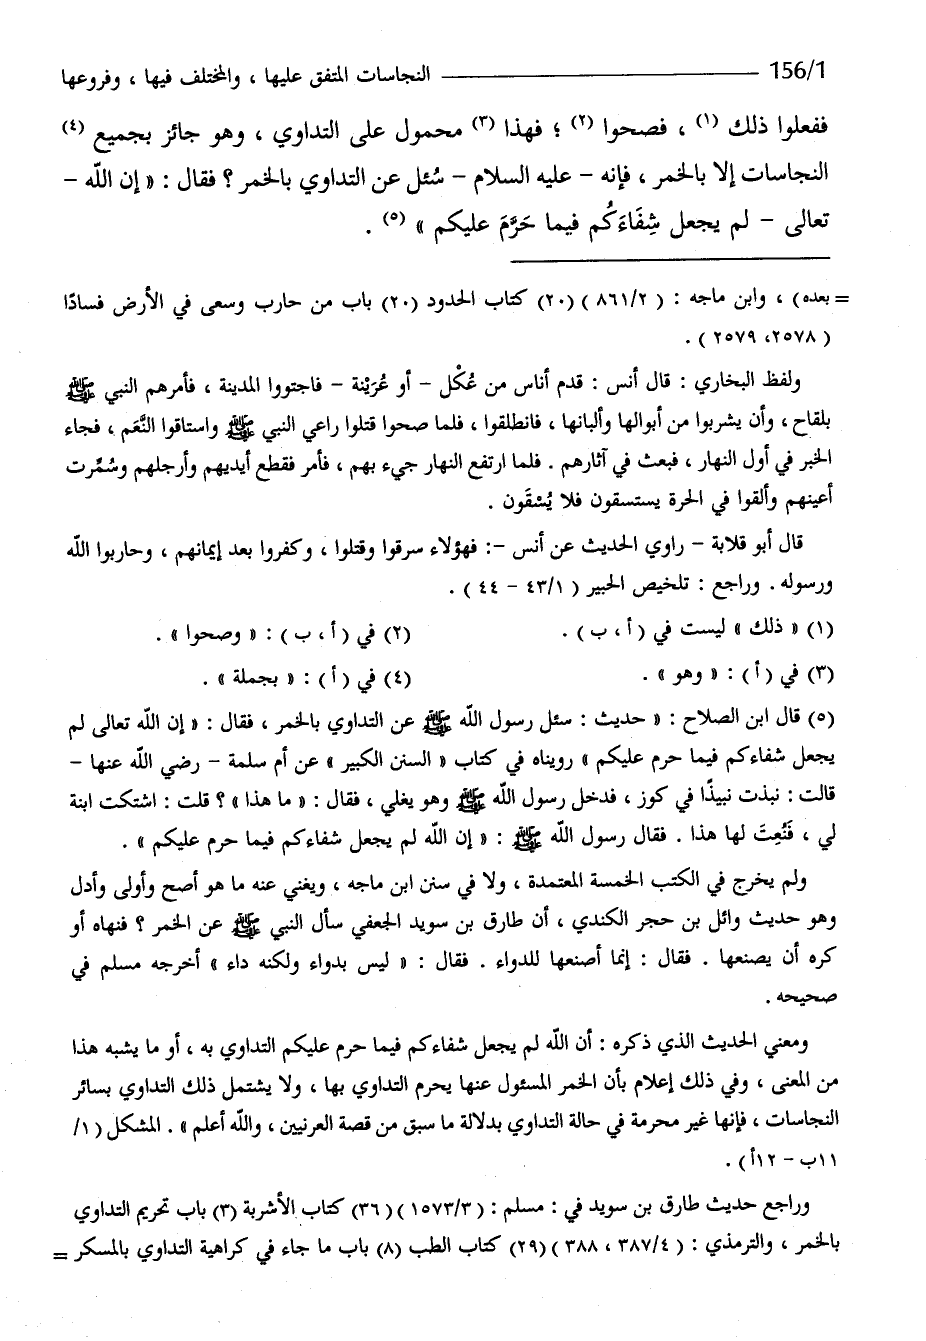 156/1 ——— النجاسات المتفق عليها ، والمختلف فيها ، وفروعها
ففعلوا ذلك (١) ، فصحوا (٢) ؛ فهذا (٣) محمول على التداوي ، وهو جائز بجميع (٤)
النجاسات إلا بالخمر ، فإنه – عليه السلام – سُئل عن التداوي بالخمر ؟ فقال : « إن اللّه –
تعالى – لم يجعل شِفَاءَكُم فيما حَرَّمَ عليكم » (٥) .
= بعده) ، وابن ماجه : ( ٨٦١/٢ ) (٢٠) كتاب الحدود (٢٠) باب من حارب وسعى في الأرض فسادًا
( ٢٥٧٨، ٢٥٧٩ ) .
ولفظ البخاري : قال أنس : قدم أناس من عُكْل – أو عُرَيْنة – فاجتووا المدينة ، فأمرهم النبي ﷺ
بلقاح ، وأن يشربوا من أبوالها وألبانها ، فانطلقوا ، فلما صحوا قتلوا راعي النبي ﷺ واستاقوا النَّعَم ، فجاء
الخبر في أول النهار ، فبعث في آثارهم . فلما ارتفع النهار جيء بهم ، فأمر فقطع أيديهم وأرجلهم وسُمِّرت
أعينهم وألقوا في الحرة يستسقون فلا يُسْقَون .
قال أبو قلابة – راوي الحديث عن أنس –: فهؤلاء سرقوا وقتلوا ، وكفروا بعد إيمانهم ، وحاربوا اللّه
ورسوله . وراجع : تلخيص الحبير ( ٤٣/١ – ٤٤ ) .
(١) « ذلك » ليست في ( أ ، ب ) . (٢) في ( أ ، ب ) : « وصحوا » .
(٣) في ( أ ) : « وهو » . (٤) في ( أ ) : « بجملة » .
(٥) قال ابن الصلاح : « حديث : سئل رسول اللّه ﷺ عن التداوي بالخمر ، فقال : « إن اللّه تعالى لم
يجعل شفاءكم فيما حرم عليكم » رويناه في كتاب « السنن الكبير » عن أم سلمة – رضي اللّه عنها –
قالت : نبذت نبيذًا في كوز ، فدخل رسول اللّه ﷺ وهو يغلي ، فقال : « ما هذا » ؟ قلت : اشتكت ابنة
لي ، فَنُعِتَ لها هذا . فقال رسول اللّه ﷺ : « إن اللّه لم يجعل شفاءكم فيما حرم عليكم » .
ولم يخرج في الكتب الخمسة المعتمدة ، ولا في سنن ابن ماجه ، ويغني عنه ما هو أصح وأولى وأدل
وهو حديث وائل بن حجر الكندي ، أن طارق بن سويد الجعفي سأل النبي ﷺ عن الخمر ؟ فنهاه أو
كره أن يصنعها . فقال : إنما أصنعها للدواء . فقال : « ليس بدواء ولكنه داء » أخرجه مسلم في
صحيحه .
ومعني الحديث الذي ذكره : أن اللّه لم يجعل شفاءكم فيما حرم عليكم التداوي به ، أو ما يشبه هذا
من المعنى ، وفي ذلك إعلام بأن الخمر المسئول عنها يحرم التداوي بها ، ولا يشتمل ذلك التداوي بسائر
النجاسات ، فإنها غير محرمة في حالة التداوي بدلالة ما سبق من قصة العرنيين ، واللّه أعلم » . المشكل ( ١/
١١ب – ١٢أ ) .
وراجع حديث طارق بن سويد في : مسلم : ( ١٥٧٣/٣ ) (٣٦) كتاب الأشربة (٣) باب تحريم التداوي
بالخمر ، والترمذي : ( ٣٨٧/٤ ، ٣٨٨ ) (٢٩) كتاب الطب (٨) باب ما جاء في كراهية التداوي بالمسكر =